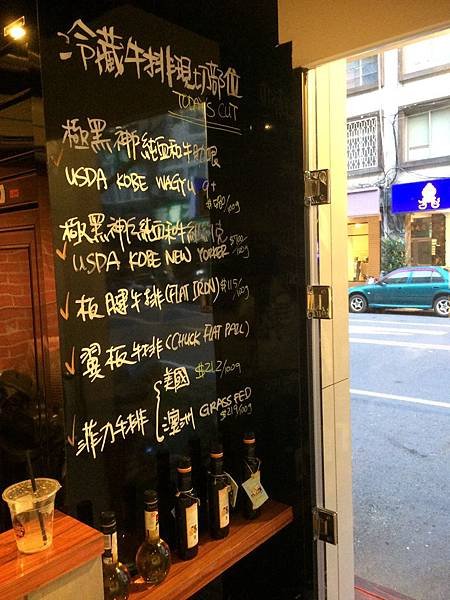 冷藏牛排現切部位
TODAY'S CUT
極黑神純血和牛肋眼
USDA KOBE WAGYU 9+
$580/100g
極黑神純血和牛紐約客
USDA KOBE NEW YORKER
/100g
板腱牛排(FLAT IRON) $115/100g
翼板牛排(CHUCK FLAT
菲力牛排
美國 $212/100g
澳洲 GRASS FED
$219/100g